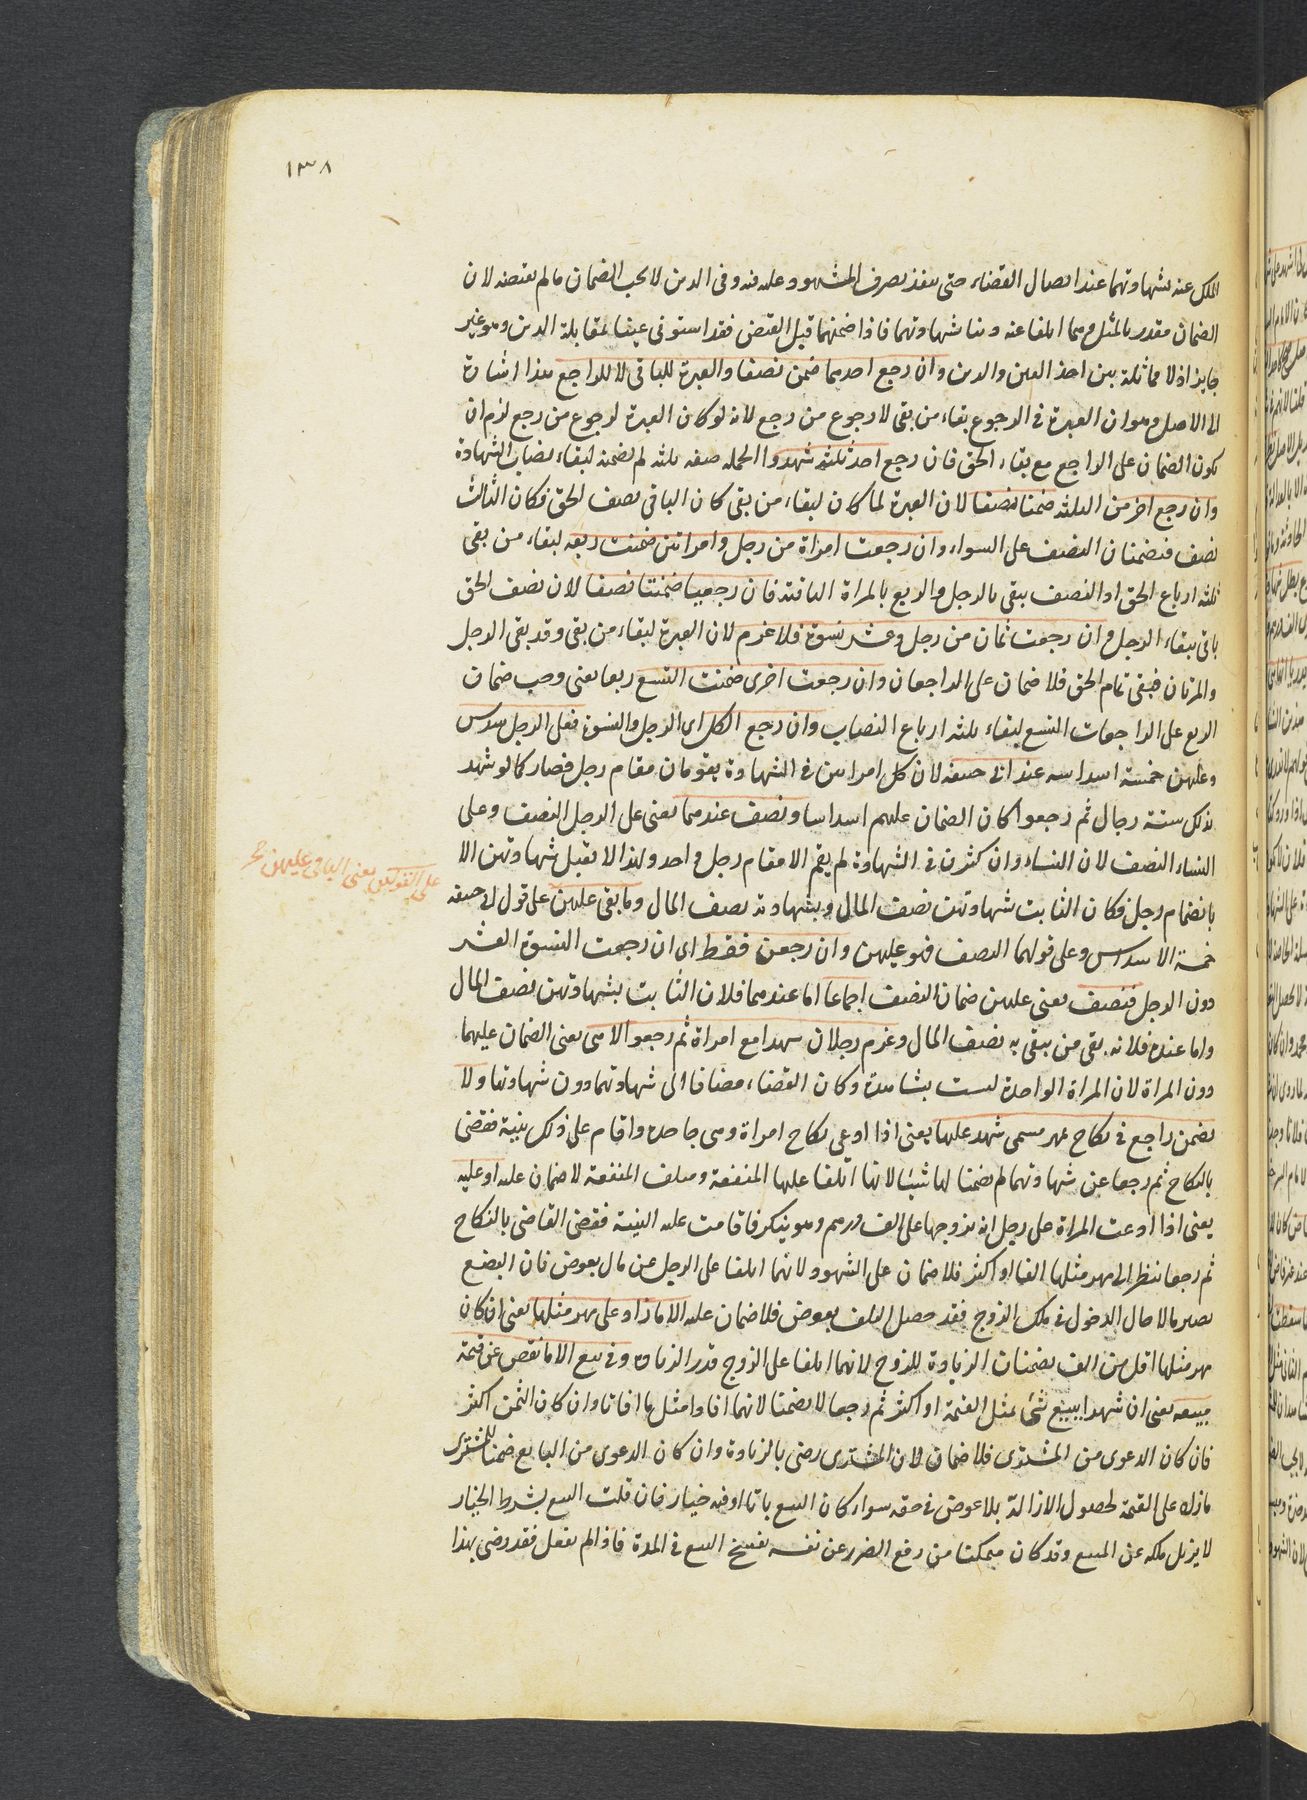 ١٣٨
الملك عنه بشهادتهما عند اتصال القضاء حتى ينفذ تصرف المشهود عليه فيه وفى الدين لا يجب الضمان ما لم يقبضه لان
الضمان مقدر بالمثل وهما اتلفا عنه دينا بشهادتهما فاذا ضمنهما قبل القبض فقد استوفى عينا بمقابلة الدين وهو غير
جايز اذ لا مماثلة بين اخذ العين والدين وان رجع احدهما ضمن نصفا والعبرة للباقى لا للراجع هذا اشارة
الى الاصل وهو ان العبرة فى الرجوع بقاء من بقى لا رجوع من رجع لانه لو كان العبرة لرجوع من رجع لزم ان
يكون الضمان على الراجع مع بقاء الحق فان رجع احد ثلثة شهدوا الجملة صفة ثلثة لم يضمنه لبقاء نصاب الشهادة
وان رجع اخر من الثلثة ضمنا نصفا لان العبرة لما كان لبقاء من بقى كان الباقى نصف الحق فكان التالف
نصف فيضمنان النصف على السواء وان رجعت امراة من رجل وامراتين ضمنت ربعه لبقاء من بقى
ثلثة ارباع الحق اذ النصف يبقى بالرجل والربع بالمراة الباقية فان رجعتا ضمنتا نصفا لان نصف الحق
باق ببقاء الرجل وان رجعت ثمان من رجل وعشر نسوة فلا غرم لان العبرة لبقاء من بقى وقد بقى الرجل
والمرتان فبقى تمام الحق فلا ضمان على الراجعان وان رجعت اخرى ضمنت التسع ربعا يعنى وجب ضمان
الربع على الراجعات التسع لبقاء ثلثة ارباع النصاب وان رجع الكل اى الرجل والنسوة فعلى الرجل سدس
وعليهن خمسة اسداسه عند ابى حنيفه لان كل امراتين فى الشهادة يقومان مقام رجل فصار كما لو شهد
بذلك ستة رجال ثم رجعوا كان الضمان عليهم اسداسا ونصف عندهما يعنى على الرجل النصف وعلى
النساء النصف لان النساء وان كثرن فى الشهادة لم يقم الا مقام رجل واحد ولهذا لا تقبل شهادتهن الا
بانضمام رجل فكان الثابت بشهادتهن نصف المال وبشهادته نصف المال وما بقى عليهن على قول ابى حنيفه
خمسة الاسداس وعلى قولهما النصف فهو عليهن وان رجعن فقط اى ان رجعت النسوة العشر
دون الرجل فنصف يعنى عليهن ضمان النصف اجماعا اما عندهما فلان الثابت بشهادتهن نصف المال
واما عنده فلانه بقى من يبقى به نصف المال وغرم رجلان شهدا مع امراة ثم رجعوا لا هى يعنى الضمان عليهما
دون المراة لان المراة الواحدة ليست بشاهدة وكان القضاء مضافا الى شهادتهما دون شهادتها ولا
يضمن راجع فى نكاح بمهر مسمى شهد عليها يعنى اذا ادعى نكاح امراة وهى جاحدة واقام على ذلك بينة فقضى
بالنكاح ثم رجعا عن شهادتهما لم يضمنا لها شيئا لانها اتلفا عليها المنفعة ومتلف المنفعة لا ضمان عليه او عليه
يعنى اذا ادعت المراة على رجل انه تزوجها على الف درهم وهو ينكر فاقامت عليه البينة فقضى القاضى بالنكاح
ثم رجعا ننظر الى مهر مثلها الفا او اكثر فلا ضمان على الشهود لانهما اتلفا على الرجل عين مال بعوض فان البضع
يصير مالا حال الدخول فى ملك الزوج فقد حصل التلف بعوض فلا ضمان عليه الا ما زاد على مهر مثلها يعنى ان كان
مهر مثلها اقل من الف يضمنان الزيادة للزوج لانهما اتلفا على الزوج قدر الزيادة وفى بيع الا ما نقص عن قيمة
مبيعه يعنى ان شهدا ببيع شئ بمثل القيمة او اكثر ثم رجعا لا يضمنا لانهما افادا مثل ما افاتا وان كان الثمن اكثر
فان كان الدعوى من المشترى فلا ضمان لان المشترى رضى بالزيادة وان كان الدعوى من البايع ضمنا للمشترى
ما زاد على القيمة لحصول الازالة بلا عوض فى حقه سواء كان البيع باتا او فيه خيار فان قلت البيع بشرط الخيار
لا يزيل ملكه عن المبيع وقد كان متمكنا من رفع الضرر عن نفسه بفسخ البيع فى المدة فاذا لم يفعل فقد رضى بهذا
على القولين يعنى الباقى عليهن صح